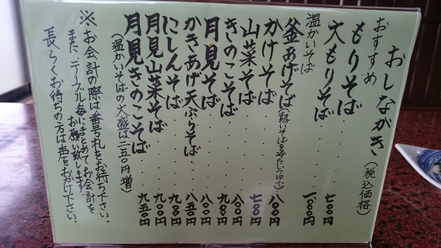 おしながき(税込価格)
おすすめ
もりそば 七〇〇円
大もりそば 一〇〇〇円
温かいそば
釜あげそば
かけそば 七〇〇円
山菜そば 八〇〇円
きのこそば 九〇〇円
月見そば 八〇〇円
かきあげ天ぷらそば 八五〇円
にしんそば 九〇〇円
月見山菜そば 九〇〇円
月見きのこそば 九五〇円
(温かいそばの大盛は二五〇円増)
※お会計の際は番号札をお持ち下さい。
また、テーブル毎にまとめてお会計を
お願い致します。
長らくお待ちの方は声をおかけ下さい。